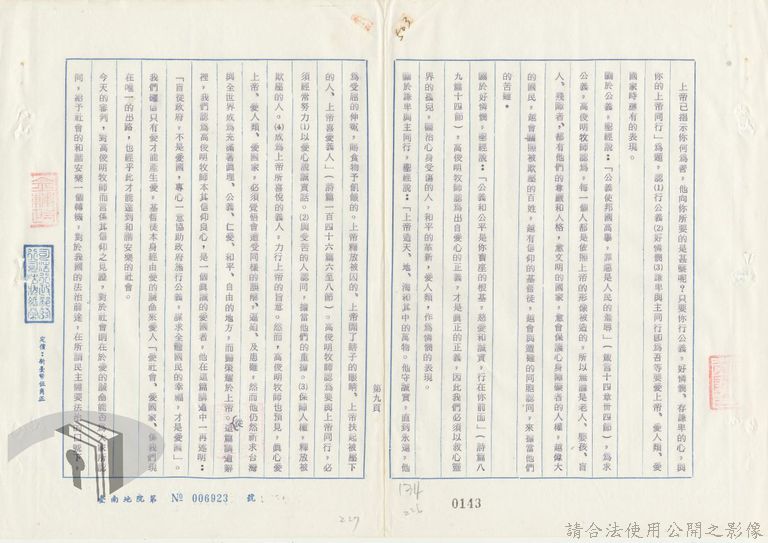 上帝已指示你何為善，他向你所要的是甚麼呢？只要你行公義，好憐憫，存謙卑的心，與
你的上帝同行」為題，認(1)行公義(2)好憐憫(3)謙卑與主同行即為吾等要愛上帝、愛人類、愛
國家時應有的表現。
關於公義，聖經說：「公義使邦國高舉，罪惡是人民的羞辱」（箴言十四章卅四節），為求
公義，高俊明牧師認為，每一個人都是依照上帝的形像被造的，所以無論是老人、嬰孩、盲
人、殘障者，都有他們的尊嚴和人格，愈文明的國家，愈會保護心身障礙者的人權，越偉大
的國民，越會關懷被欺壓的百姓，越有信仰的基督徒，越會與遭難的同胞認同，來擔當他們
的苦難。
關於好憐憫，聖經說：「公義和公平是你寶座的根基，慈愛和誠實，行在你前面」（詩篇八
九篇十四節），高俊明牧師認為出自愛心的正義，才是真正的正義，因此我們必須以救心靈
界的孤兒，醫治心身受傷的人，和平的革新，愛人類，作為憐憫的表現。
關於謙卑與主同行，聖經說：「上帝造天、地、海和其中的萬物。他守誠實，直到永遠，他
第九頁
為受屈的伸冤，賜食物予飢餓的。上帝釋放被囚的。上帝開了瞎子的眼睛。上帝扶起被壓下
的人、上帝喜愛義人」（詩篇一百四十六篇六至八節）。高俊明牧師認為要與上帝同行，必
須經常努力(1)以愛心說誠實話。(2)與受苦的人認同，擔當他們的重擔。(3)保障人權，釋放被
欺壓的人。(4)成為上帝所喜悅的義人，力行上帝的旨意。然而，高俊明牧師也預見，真心愛
上帝、愛人類、愛國家，必須覺悟會遭受同樣的誤解、逼迫、及患難，然而他仍然祈求台灣
與全世界成為充滿著真理、公義、仁愛、和平、自由的地方，而歸榮耀於上帝。從這篇講道辭
裡，我們認為高俊明牧師本其信仰良心，是一個真誠的愛國者，他在這篇講道中一再述明：
「盲從政府，不是愛國，專心一意協助政府施行公義，謀求全體國民的幸福，才是愛國」。
我們確信只有愛才能產生愛，基督徒本身經由愛的誡命來愛人「愛社會、愛國家、像我們現
在唯一的出路，也經乎此才能達到和諧安樂的社會。
今天的審判，對高俊明牧師而言係其信仰之見證，對於社會則在於愛的誡命能否為大家所認
同，給予社會的和諧安樂一個轉機，對於我國的法治前途，在所謂民主體要法治的口號下，
定價：新臺幣伍角正
臺南地院第 № 006923 號
227
503
134
226
0143
請合法使用公開之影像